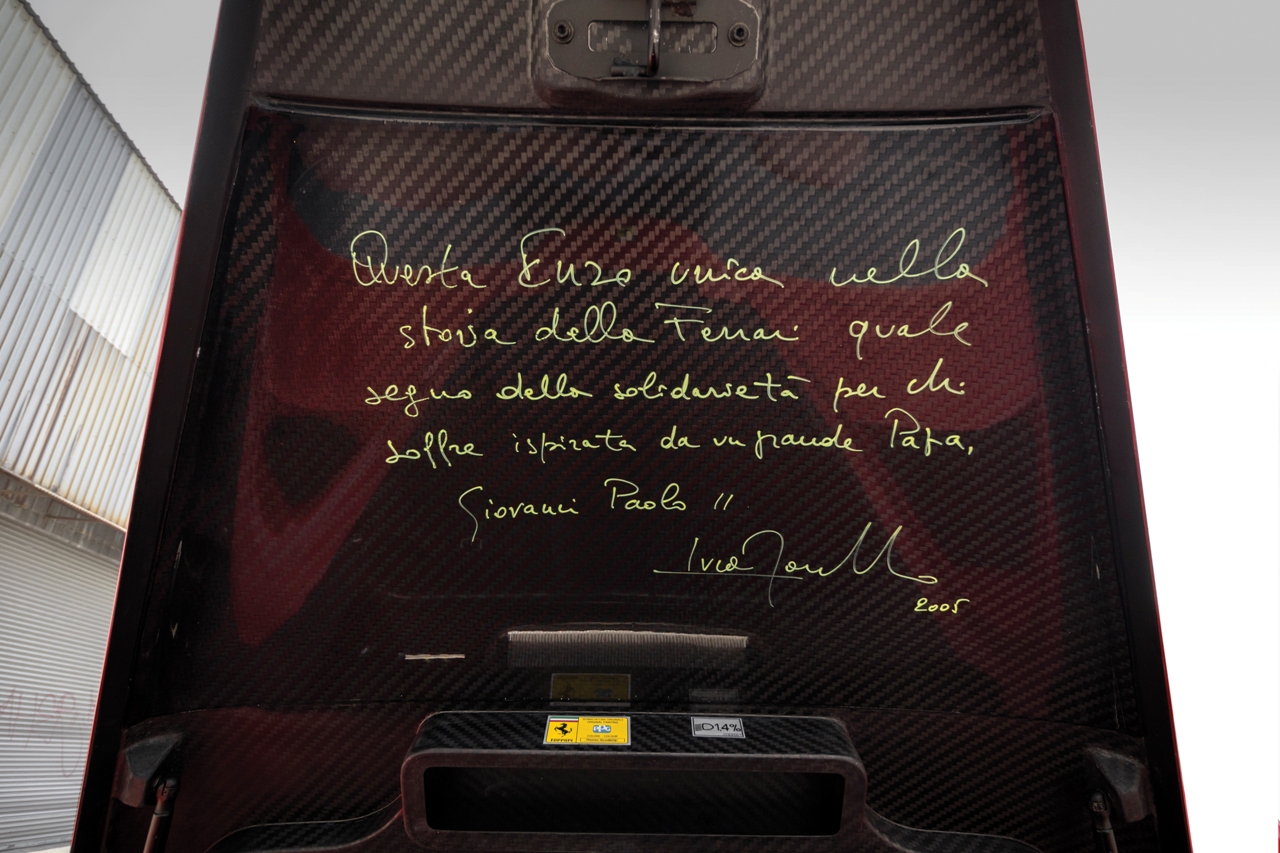 Questa Enzo unica nella
storia della Ferrari quale
segno della solidarietà per chi
soffre ispirata da un grande Papa,
Giovanni Paolo II
2005
Ferrari
D1,4%